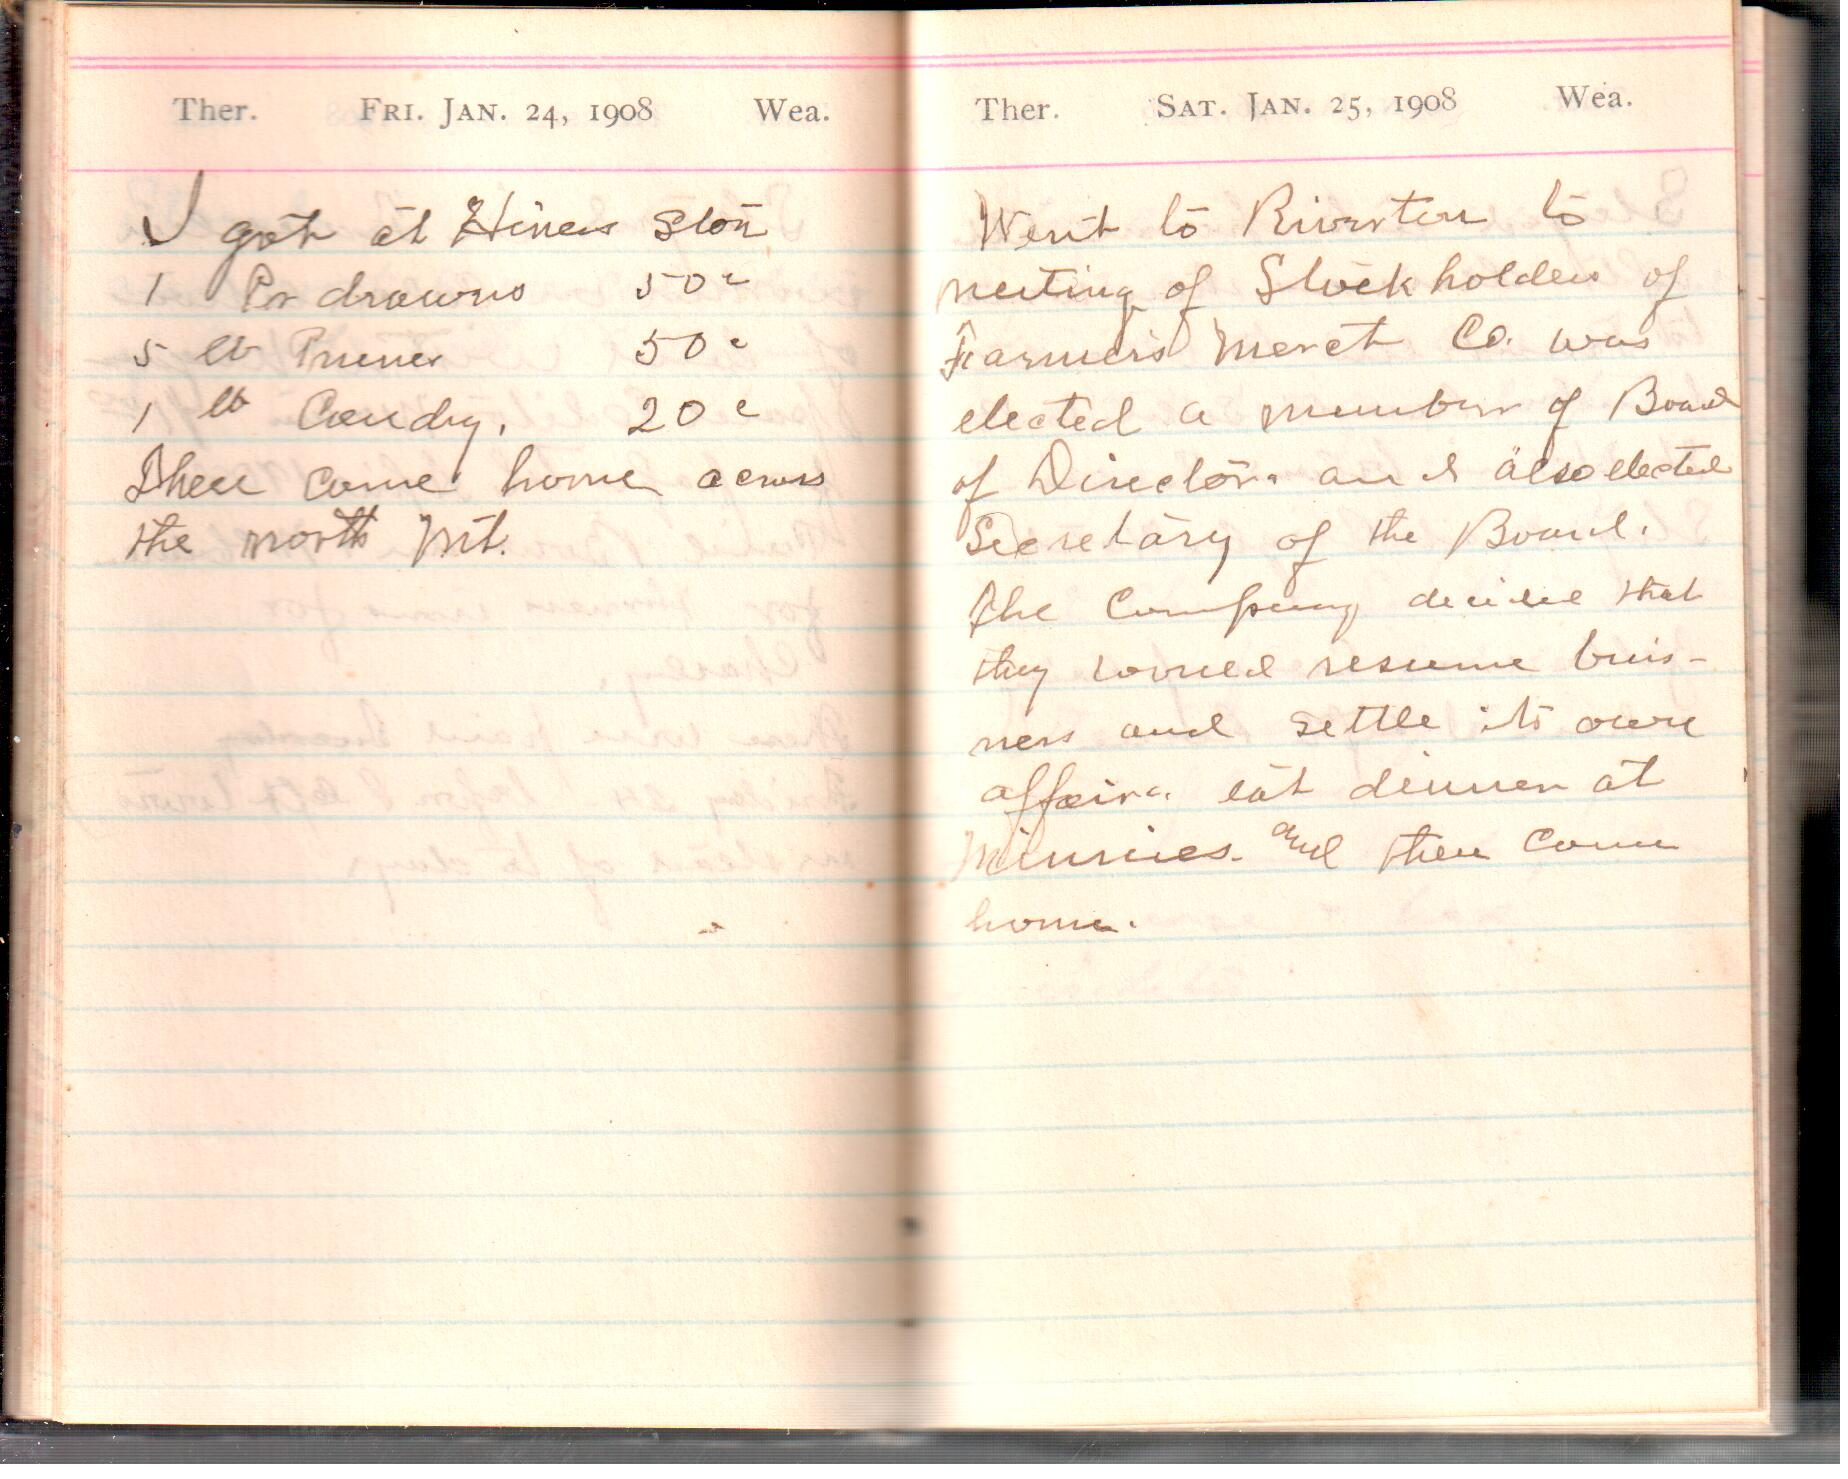 Ther. Fri. Jan. 24, 1908 Wea.
I got at Hines Store
1 Pr drawrs 50c
5 lb Prunes 50c
1 lb Candy. 20c
Then come home across
the north Mt.
Ther. Sat. Jan. 25, 1908 Wea.
Went to Riverton to
meeting of Stock holders of
Farmers Merct Co. was
elected a member of Board
of Directors and also elected
Secretary of the Board.
The Company decided that
they would resume buis-
ness and settle its own
affairs. eat dinner at
Minnies. and then come
home.